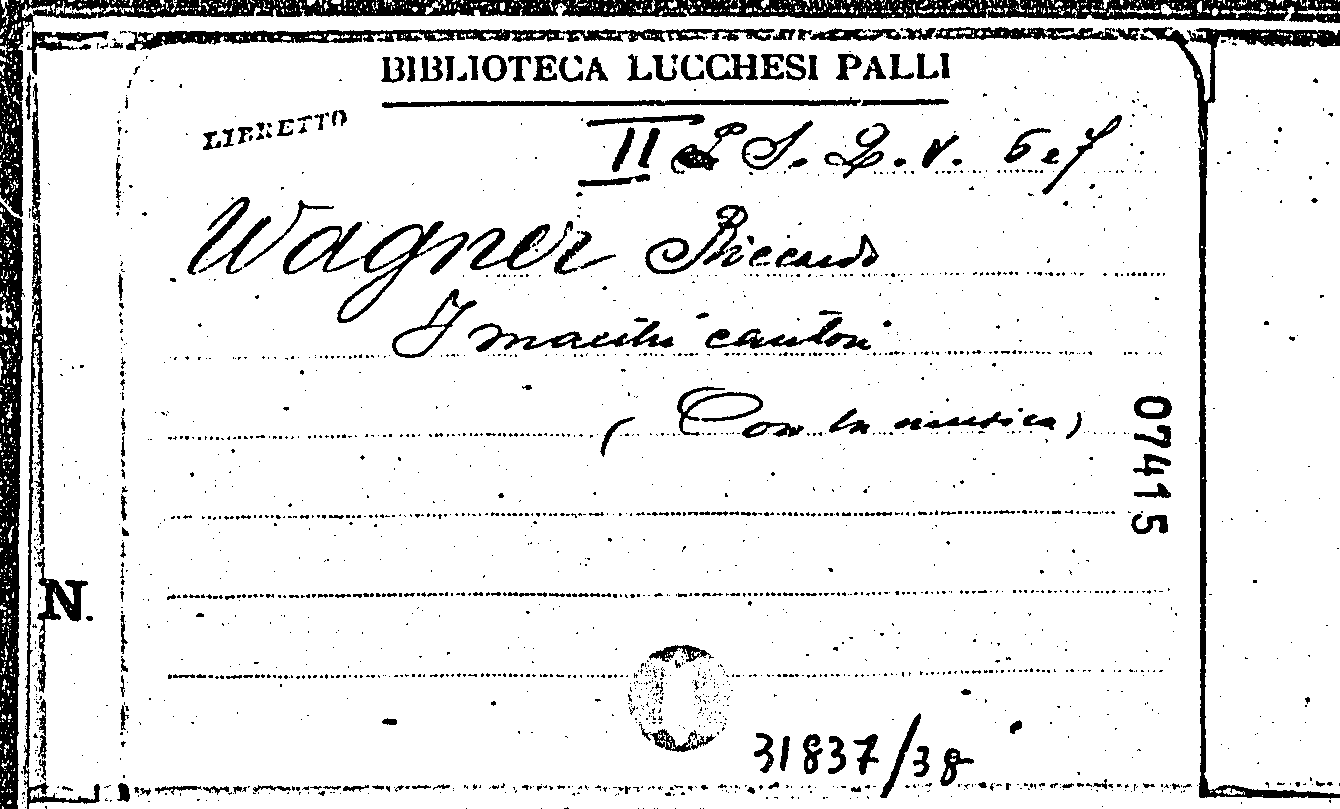 BIBLIOTECA LUCCHESI PALLI
LIBRETTO
II S. Q. V. 6 e 7
Wagner Riccardo
I maestri cantori
( Con la musica )
07415
N.
31837/38